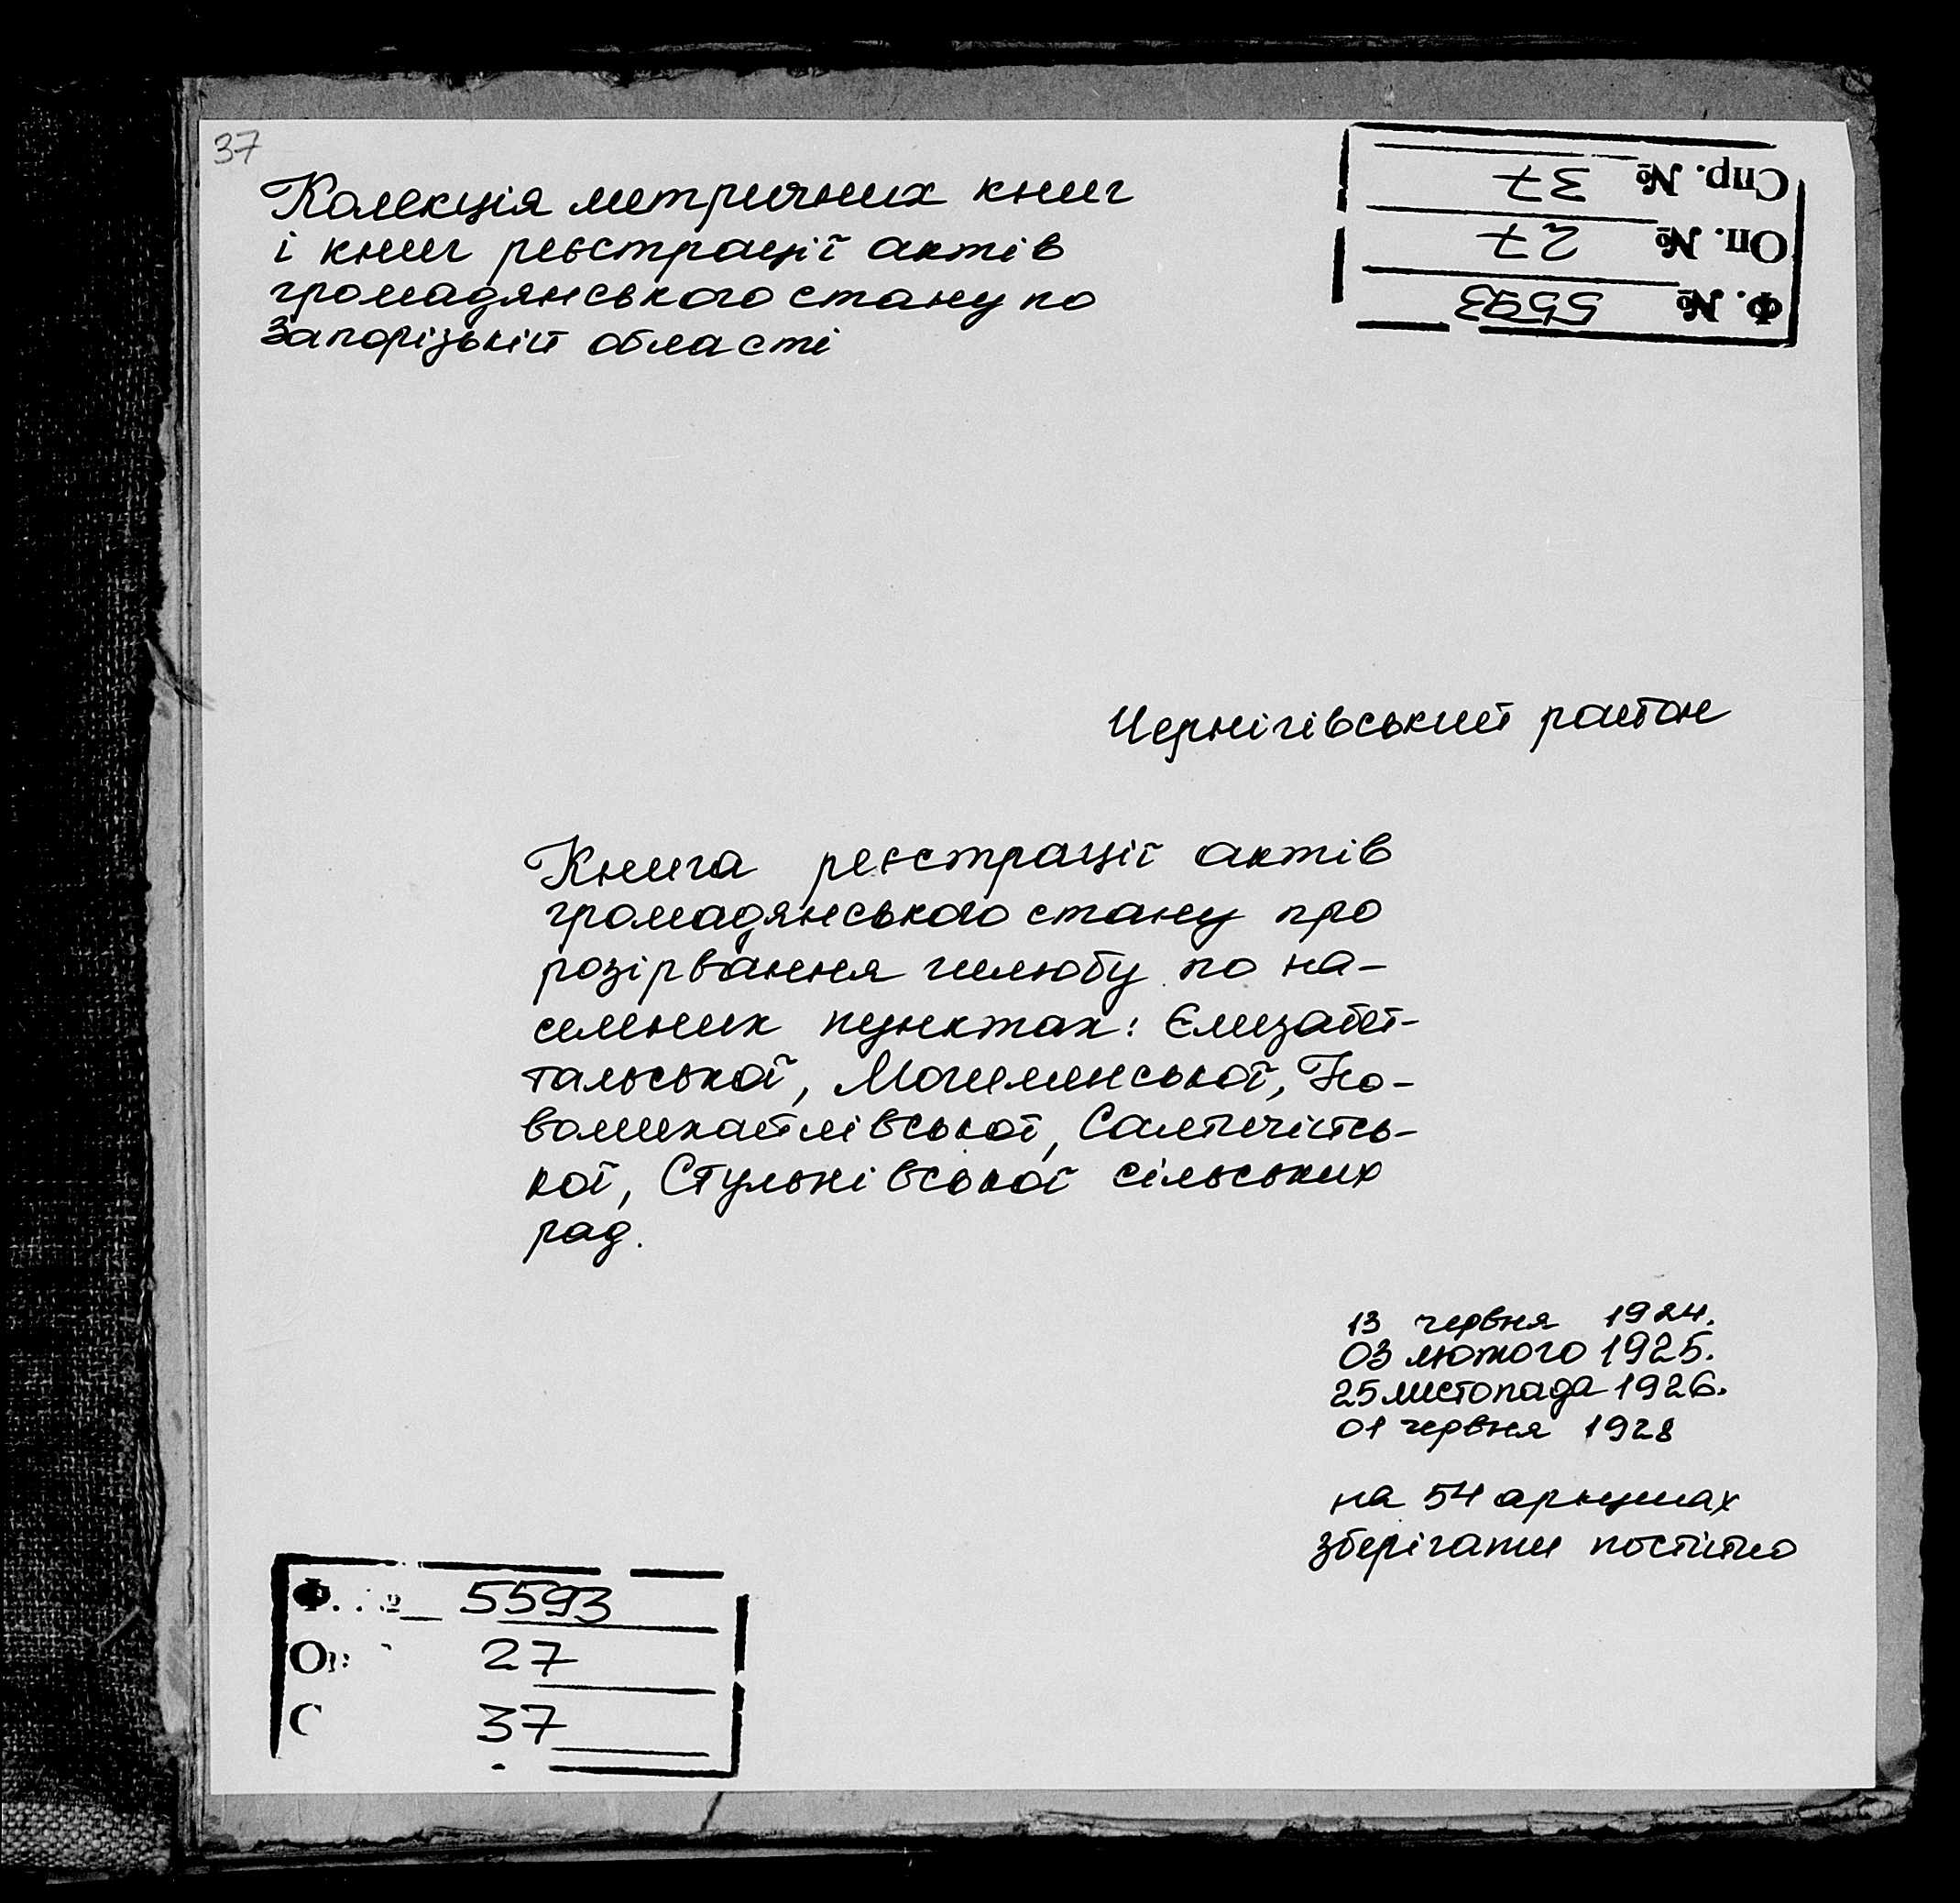 37
Колекція метричних книг
і книг реєстрації актів
громадянського стану по
Запорізькій області
Спр. № 37
Оп. № 27
Ф. № 5593
Чернігівський район
Книга реєстрації актів
громадянського стану про
розірвання шлюбу по на-
селених пунктах: Єлизабет-
тальської, Могилянської, Но-
вомихайлівської, Салтичійсь-
кої, Стульнівської сільських
рад.
13 червня 1924.
03 лютого 1925.
25 листопада 1926.
01 червня 1928
на 54 аркушах
зберігати постійно
Ф. № 5593
Оп 27
С 37